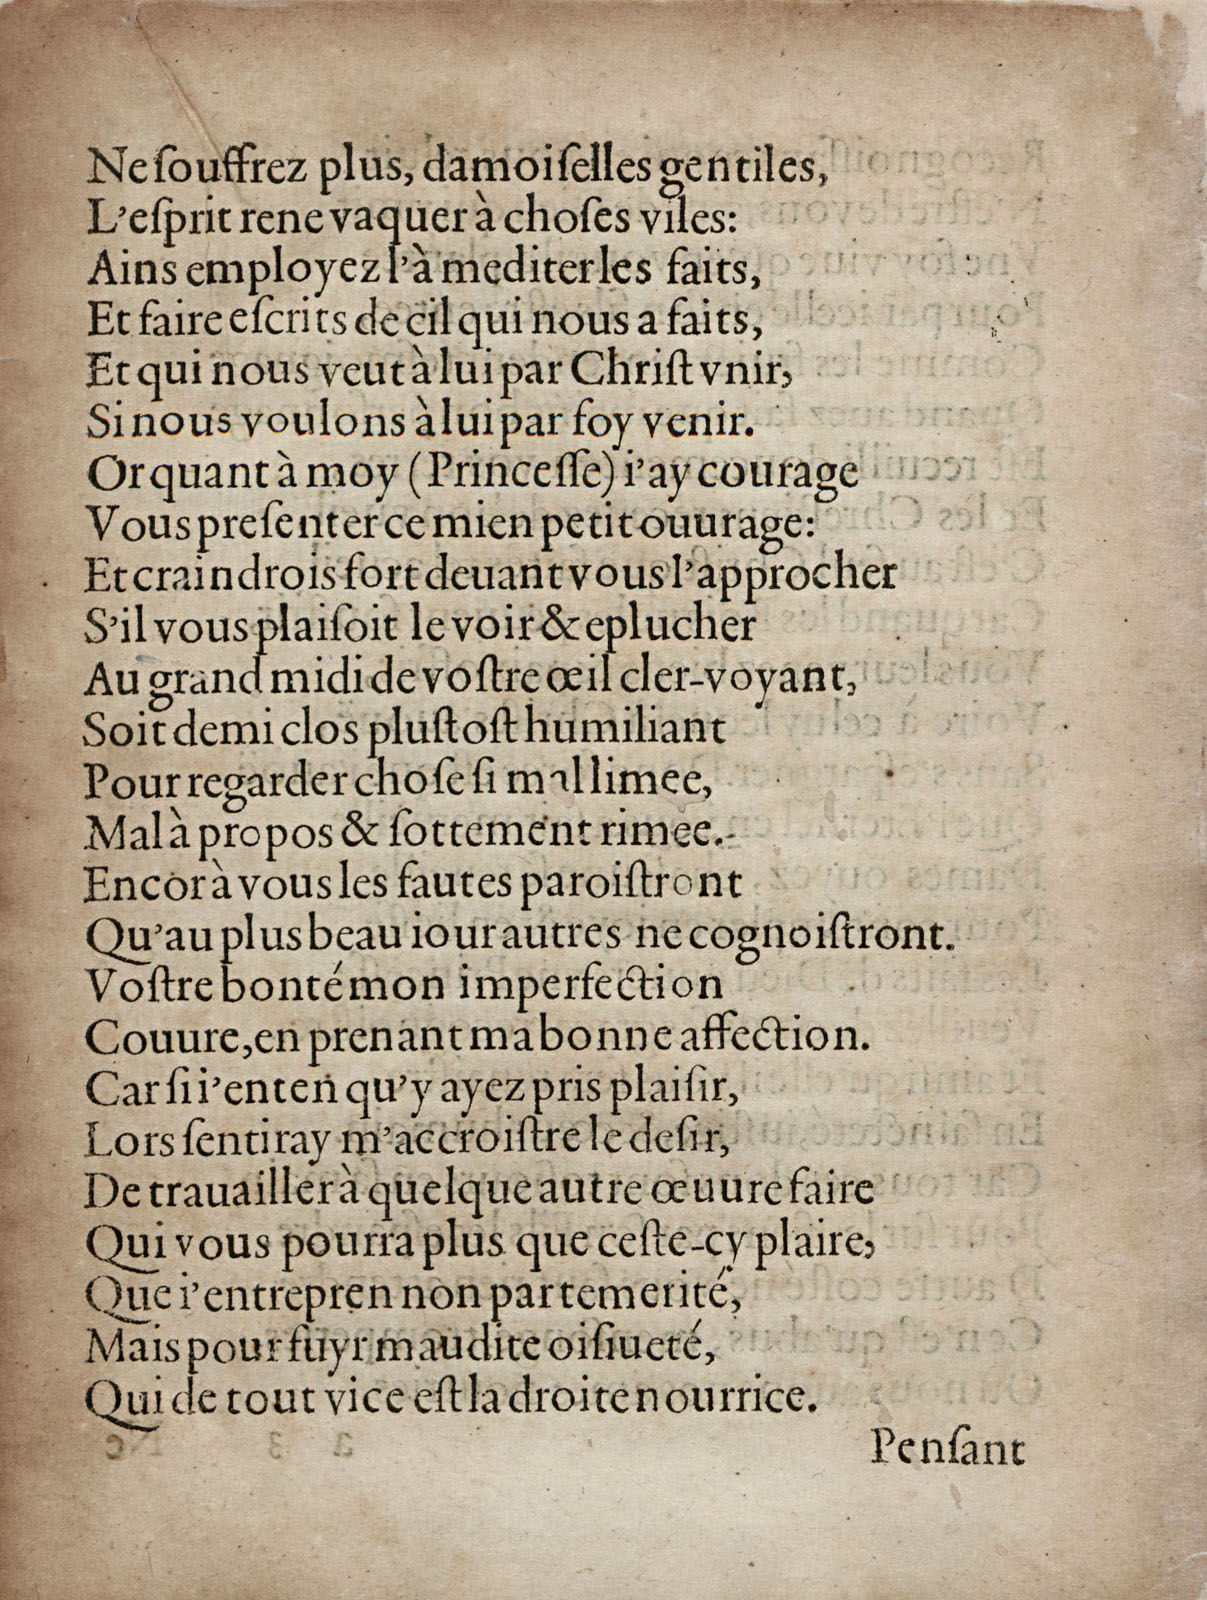 Ne ſouffrez plus, damoiſelles gentiles,
L'eſprit rene vaquer à choſes viles:
Ains employez l'à mediter les faits,
Et faire eſcrits de cil qui nous a faits,
Et qui nous veut à lui par Chriſt vnir,
Si nous voulons à lui par foy venir.
Or quant à moy (Princeſſe) i'ay courage
Vous preſenter ce mien petit ouurage:
Et craindrois fort deuant vous l'approcher
S'il vous plaiſoit le voir & eplucher
Au grand midi de voſtre œil cler-voyant,
Soit demi clos pluſtoſt humiliant
Pour regarder choſe ſi mal limee,
Mal à propos & ſottement rimee.
Encor à vous les fautes paroiſtront
Qu'au plus beau iour autres ne cognoiſtront.
Voſtre bonté mon imperfection
Couure, en prenant ma bonne affection.
Car ſi i'enten qu'y ayez pris plaiſir,
Lors ſentiray m'accroiſtre le deſir,
De trauailler à quelque autre œuure faire
Qui vous pourra plus que ceſte-cy plaire,
Que i'entrepren non par temerité,
Mais pour fuyr maudite oiſiueté,
Qui de tout vice eſt la droite nourrice.
Penſant